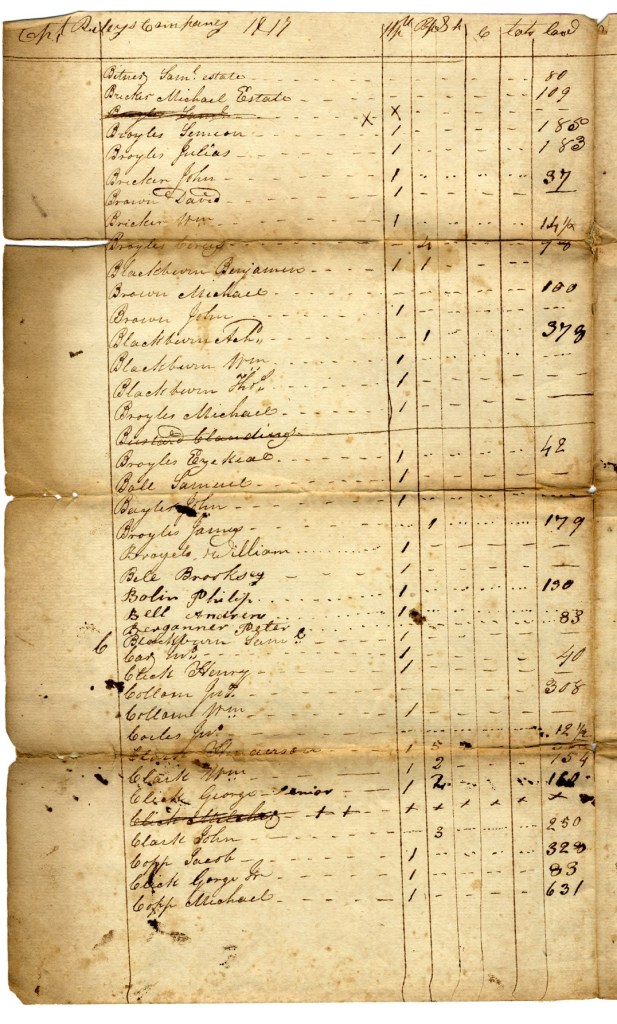 Capt Rileys Company 1817 Wp Bp S h C tots land
Bitner Saml estate 80
Bricker Michael Estate 109
Broyles x x
Broyles Simeon 1 185
Broyles Julias 1 183
Bricker John 1 37
Brown David 1
Bricker Wm 1 14½
Broyles 4 78
Blackburn Benjamin 1 1
Brown Michael 100
Brown John 1
Blackburn Ach 1 378
Blackburn Wm 1
Blackburn Thos 1
Broyles Michael 1
Bustard Claudings
Broyles Ezekial 1 42
Ball Samuel 1
Bayles John 1
Broyles James 1 179
Broyels William 1
Bele Brooksey 1
Bolin Philip 1 130
Bell Andrew 1
Berganner Peter 83
C Blackburn Saml 1
Car Jno 1
Click Henry 1 40
Collom Jno 308
Collom Wm 1
Cooles Jno 12½
1 5
Clark Wm 2 154
Click George Senior 1 2 160
Click + + + + + + + +
Clark John 3 250
Copp Jacob 1 328
Click Gorge Jr 1 83
Copp Michael 1 631